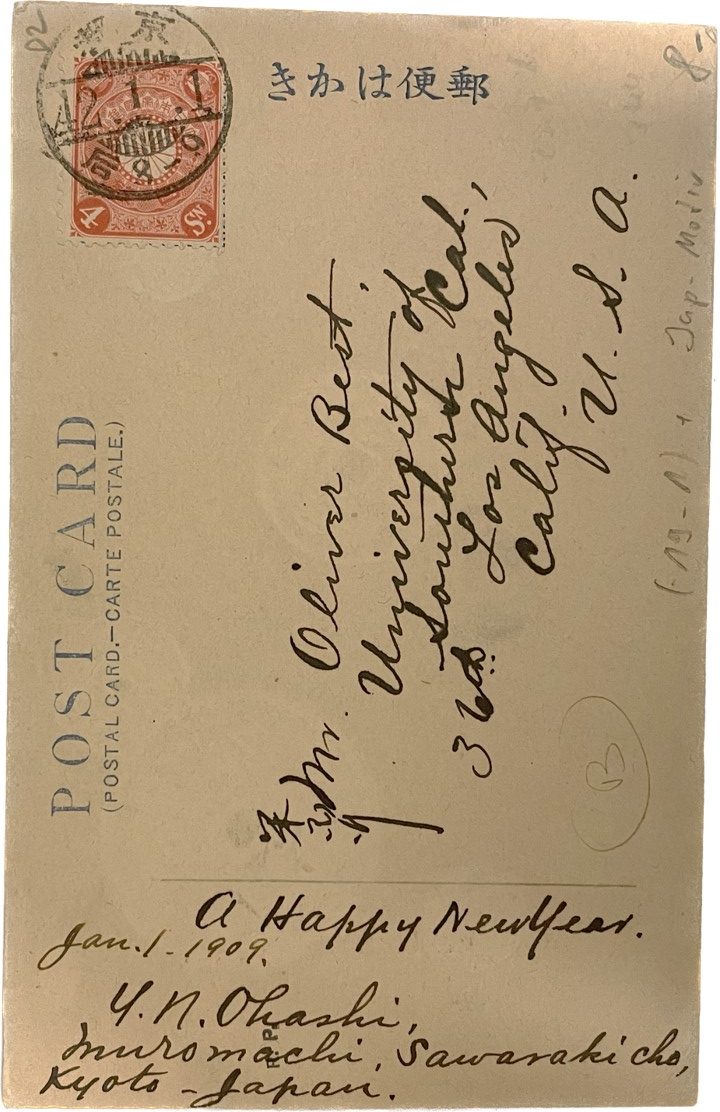 郵便はかき
京都
42.1.1
8-9
4
Sn.
POST CARD
(POSTAL CARD.—CARTE POSTALE.)
Mr. Oliver Best,
University of
Southern Cal.,
36th
Los Angeles
Calif.
U. S. A.
A Happy New Year.
Jan. 1 - 1909.
Y. N. Ohashi,
Muromachi, Sawaraki cho,
Kyoto - Japan.
Jap-Motiv
B